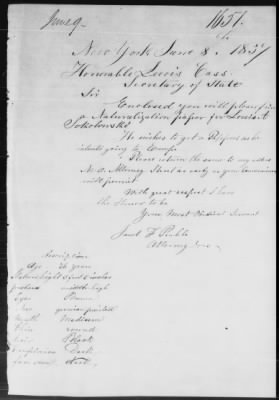 June 9.
1651.
New York June 8. 1857
Honorable Lewis Cass.
Secretary of State
Sir
Enclosed you will please find
a Naturalization paper for
Sokolowski
He wishes to get a Passport as he
intends going to Europe
Please return the same to my address
No 2. Street as early as your convenience
will permit
With great respect I have
the Honor to be
Your Most Obedient Servant
Attorney
Description
Age 36 years
Stature height 5 feet
forehead middle high
Eyes Brown
Nose pointed
Mouth Medium
Chin round
Hair Black
Complexion Dark
Face